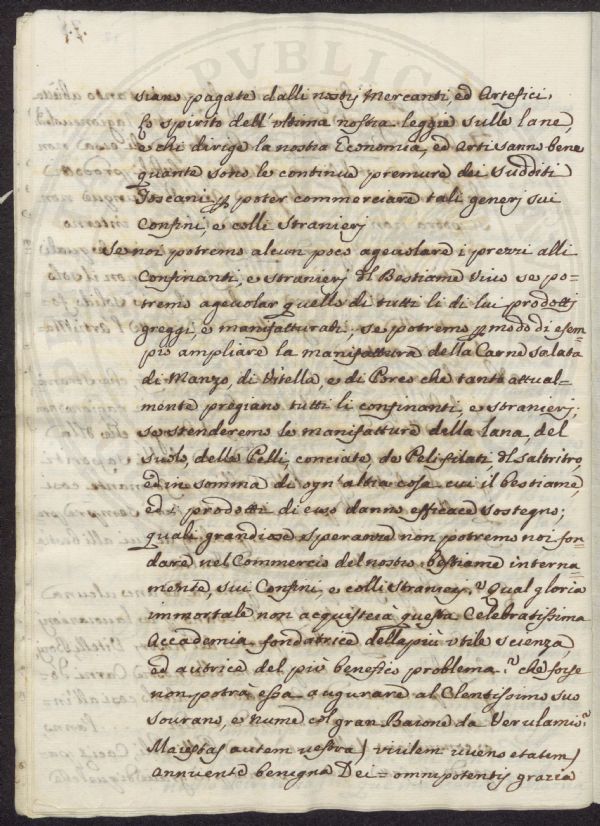 siano pagate dalli nostrj Mercanti ed Artefici,
Lo spirito dell'ultima nostra leggie sulle lane,
e chi dirige la nostra Economia, ed arti sanno bene
quante sono le continue premure dei sudditi
Toscani poter commerciare tali generj sui
Confini, e colli Stranierj
Se noi potremo alcun poco agevolare i prezzi alli
Confinanti, e stranierj del Bestiame vivo se po-
tremo agevolar quello di tutti li di lui prodottj
greggi, e manifatturati; se potremo p modo di esem-
pio ampliare la manifattura della Carne salata
di Manzo, di Vitella, e di Porco che tanto attual-
mente pregiano tutti li confinanti, e stranierj;
se stenderemo le manifatture della lana, del
suolo, delle Pelli, conciate de Pelifilati del salnitro,
ed in somma di ogn'altra cosa cui il bestiame,
ed i prodotti di esso danno efficace sostegno;
quali grandiose speranze non potremo noi fon-
dare nel Commercio del nostro bestiame interna-
mente, sui Confini, e colli Stranierj? Qual gloria
immortale non acquisterà questa Celebratissima
Accademia fondatrice della più utile scienza,
ed autrice del più benefico problema? che forse
non potrà essa augurare al Clentissimo suo
Sourano, e Nume col gran Bacone da Verulamio?
Maiestas autem vestra / virilem iuveno etatem /
annuente benigna Dei = omnipotentis grazia